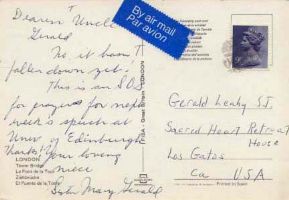 Dearest Uncle
Gerald
No it hasn't
fallen down yet!
This is an SOS
for prayers for next
week's speech at
Univ of Edinburgh
Thanks! Your loving
niece
Sister Mary Gerald
LONDON
Tower Bridge
Le Pont de la Tour
El Puente de la Torre
By air mail
Par avion
LONDON
Gerald Leahy SJ.
Sacred Heart Retreat
House
Los Gatos
Ca USA
Printed in Spain